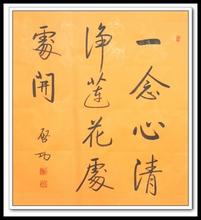 一念心清
净莲花處
處開
啓功